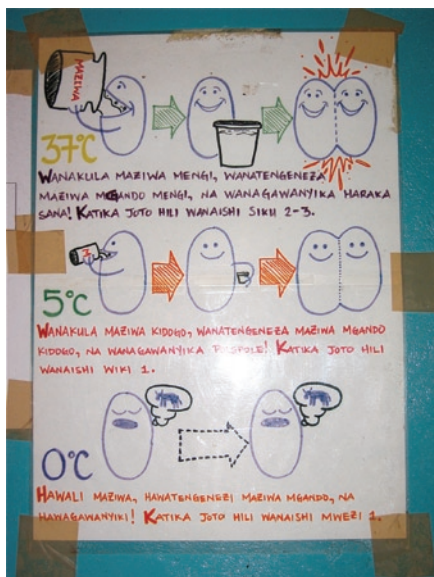 MAZIWA
37°C
WANAKULA MAZIWA MENGI, WANATENGENEZA
MAZIWA MGANDO MENGI, NA WANAGAWANYIKA HARAKA
SANA! KATIKA JOTO HILI WANAISHI SIKU 2-3.
5°C
WANAKULA MAZIWA KIDOGO, WANATENGENEZA MAZIWA MGANDO
KIDOGO, NA WANAGAWANYIKA POLEPOLE! KATIKA JOTO HILI
WANAISHI WIKI 1.
0°C
HAWALI MAZIWA, HAWATENGENEZI MAZIWA MGANDO, NA
HAWAGAWANYIKI! KATIKA JOTO HILI WANAISHI MWEZI 1.